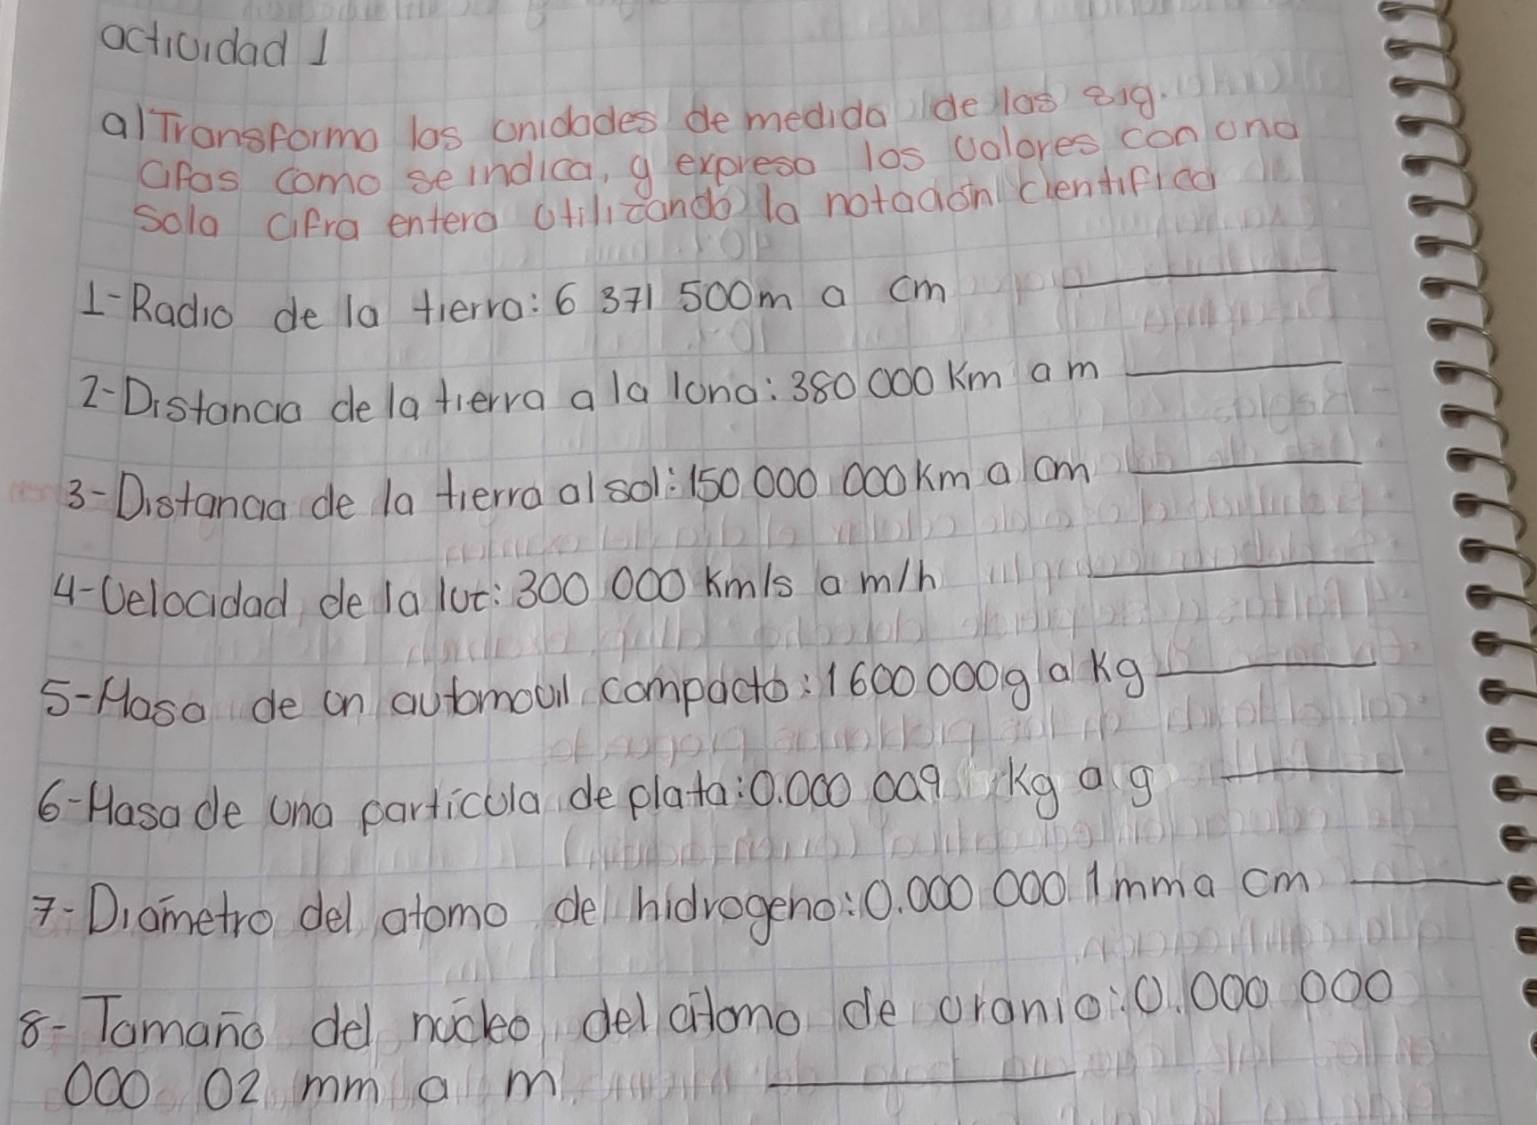 actividad 1
a) Transforma las unidades de medida de las sig.
cifras como se indica, y expresa los valores con una
sola cifra entera utilizando la notación cientifica
1- Radio de la tierra: 6 371 500m a cm
2- Distancia de la tierra a la luna: 380 000 Km a m
3- Distancia de la tierra al sol: 150 000 000 Km a cm
4- Velocidad de la luz: 300 000 Km/s a m/h
5- Masa de un automovil compacto: 1 600 000g a Kg
6- Masa de una particula de plata: 0.000 009 Kg a g
7- Diámetro del atomo de hidrogeno: 0.000 000 1 mm a cm
8- Tamaño del núcleo del átomo de uranio: 0.000 000
000 02 mm a m